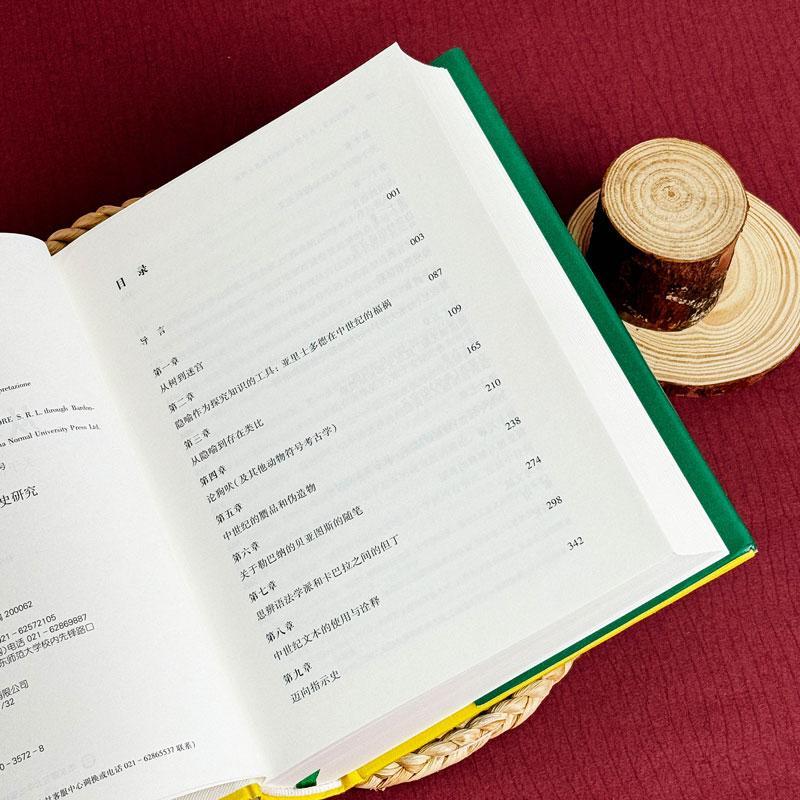 pretazione
ORE S. R. L. through Bardon-
na Normal University Press Ltd.
号
史研究
200062
021-62572105
电话 021-62869887
东师范大学校内先锋路口
有限公司
/32
0-3572-8
社客服中心调换或电话 021-62865537 联系)
目 录
导 言 001
第一章
从树到迷宫 003
第二章
隐喻作为探究知识的工具:亚里士多德在中世纪的福祸 087
第三章
从隐喻到存在类比 109
第四章
论狗吠(及其他动物符号考古学) 165
第五章
中世纪的赝品和伪造物 210
第六章
关于勒巴纳的贝亚图斯的随笔 238
第七章
思辨语法学派和卡巴拉之间的但丁 274
第八章
中世纪文本的使用与诠释 298
第九章
迈向指示史 342